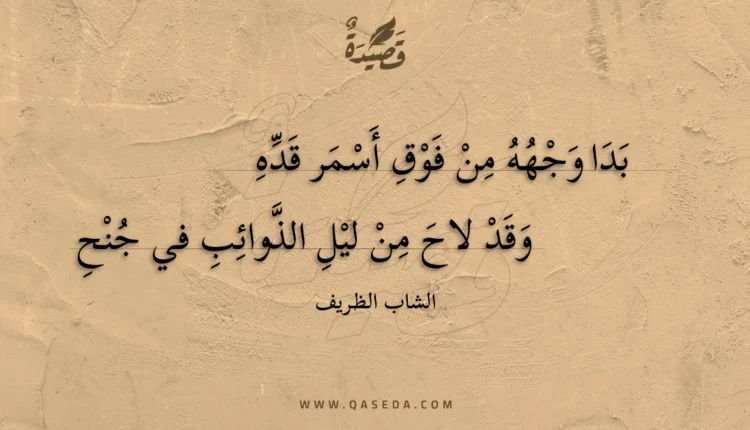 قَصِيدَةٌ
بَدَا وَجْهُهُ مِنْ فَوْقِ أَسْمَر قَدِّهِ
وَقَدْ لاحَ مِنْ ليْلِ الذَّوائِبِ في جُنْحِ
الشاب الظريف
WWW.QASEDA.COM